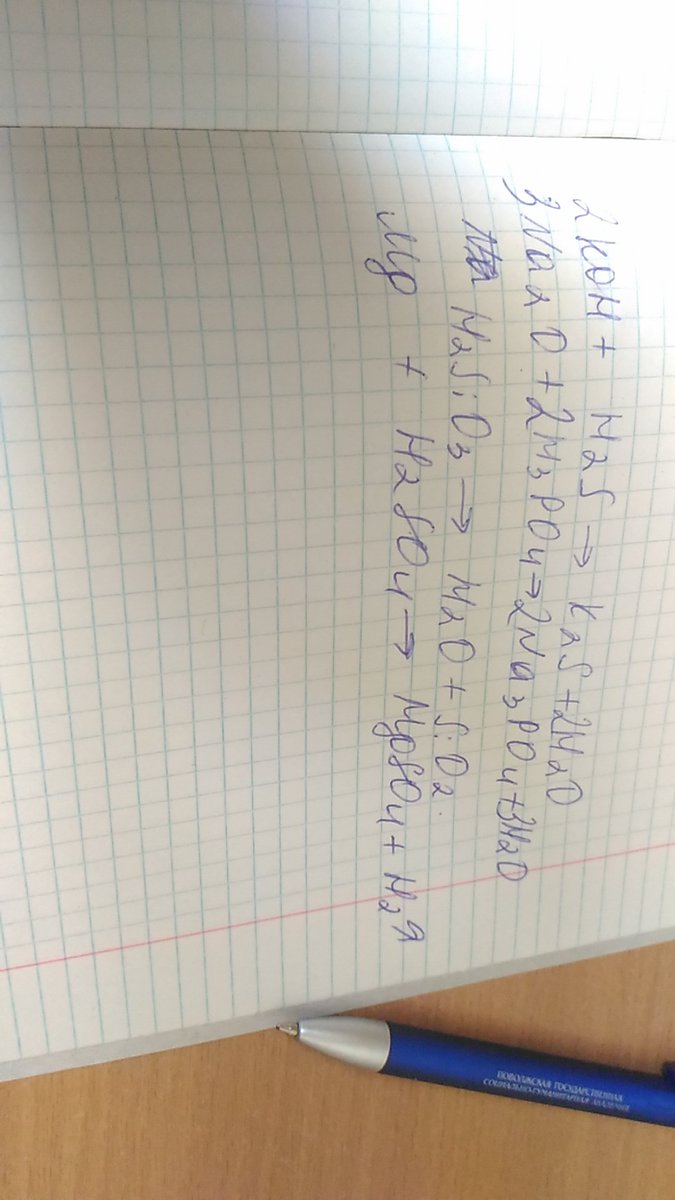 2KOH + H2S → K2S + 2H2O
3Na2O + 2H3PO4 → 2Na3PO4 + 3H2O
H2SiO3 → H2O + SiO2
Mg + H2SO4 → MgSO4 + H2↑
ПОВОЛЖСКАЯ ГОСУДАРСТВЕННАЯ
СОЦИАЛЬНО-ГУМАНИТАРНАЯ АКАДЕМИЯ